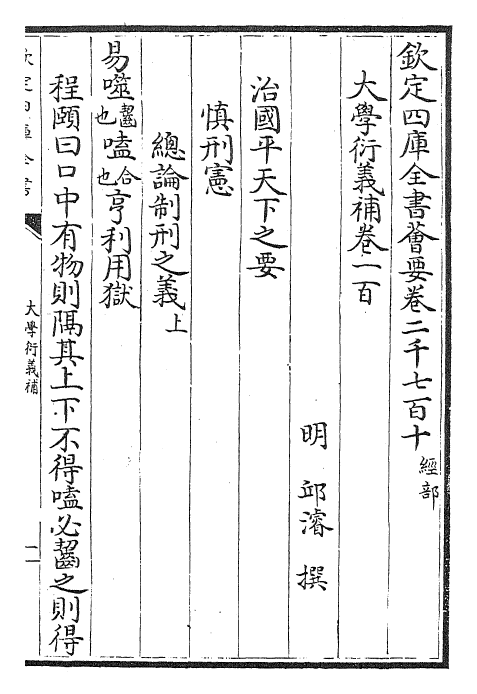 欽定四庫全書薈要卷二千七百十經部
大學衍義補卷一百
明 邱濬 撰
治國平天下之要
慎刑憲
總論制刑之義上
易噬齧也嗑合也亨利用獄
程頤曰口中有物則隔其上下不得嗑必齧之則得
欽定四庫全書
大學衍義補
一